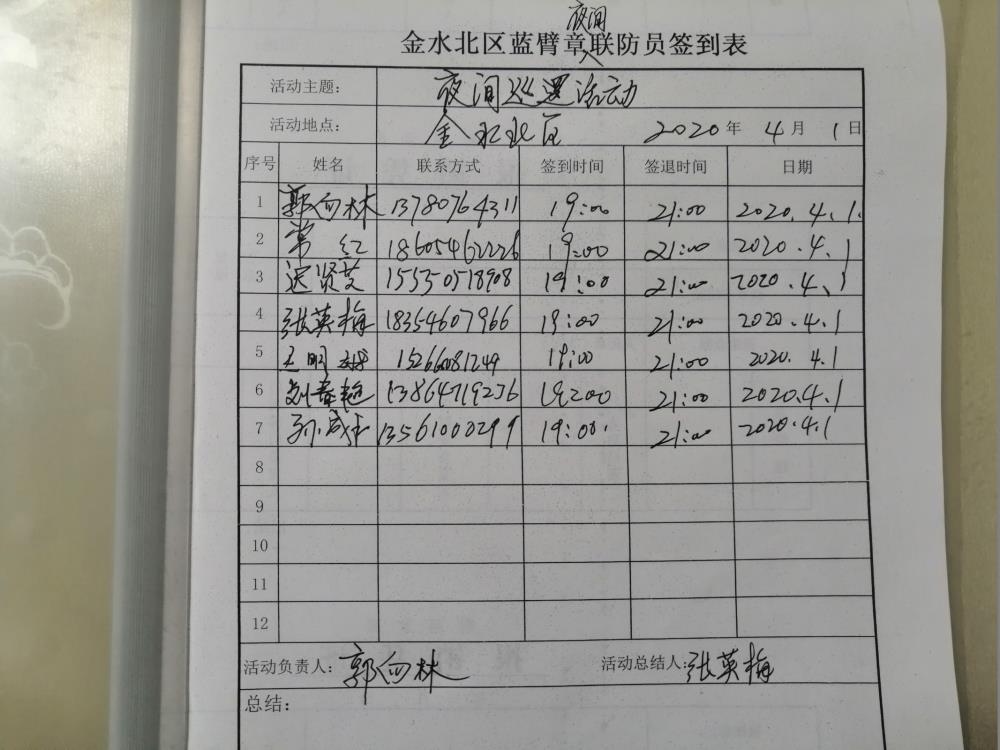 夜间
金水北区蓝臂章联防员签到表
活动主题: 夜间巡逻活动
活动地点: 金水北区 2020年 4月 1日
序号 姓名 联系方式 签到时间 签退时间 日期
1 郭向林 13780764311 19:00 21:00 2020.4.1.
2 常红 18605462226 19:00 21:00 2020.4.1
3 迟贤艾 15550518908 19:00 21:00 2020.4.1
4 张英梅 18354607966 19:00 21:00 2020.4.1
5 15266081249 19:00 21:00 2020.4.1
6 刘春艳 13864719236 19:00 21:00 2020.4.1
7 孙成 13561000299 19:00. 21:00 2020.4.1
8
9
10
11
12
活动负责人: 郭向林 活动总结人: 张英梅
总结: